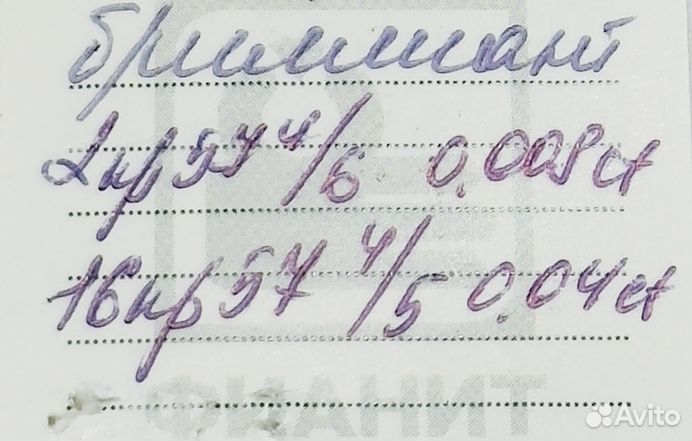 бриллиант
2кр57 4/6 0.008ct
16кр57 4/5 0.04ct
ФИАНИТ
Avito